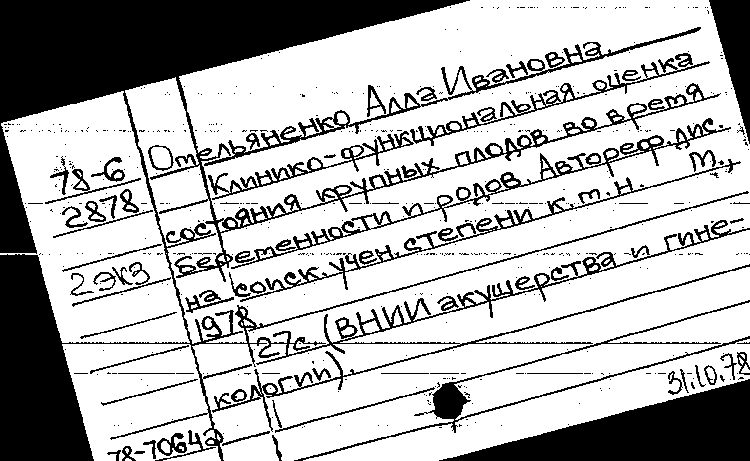 Отельяненко, Алла Ивановна.
78-6
2878
2 экз
Клинико-функциональная оценка
состояния крупных плодов во время
беременности и родов. Автореф. дис.
на соиск. учен. степени к.т.н. М.,
1978.
27с. (ВНИИ акушерства и гине-
кологии).
31.10.78
78-70642